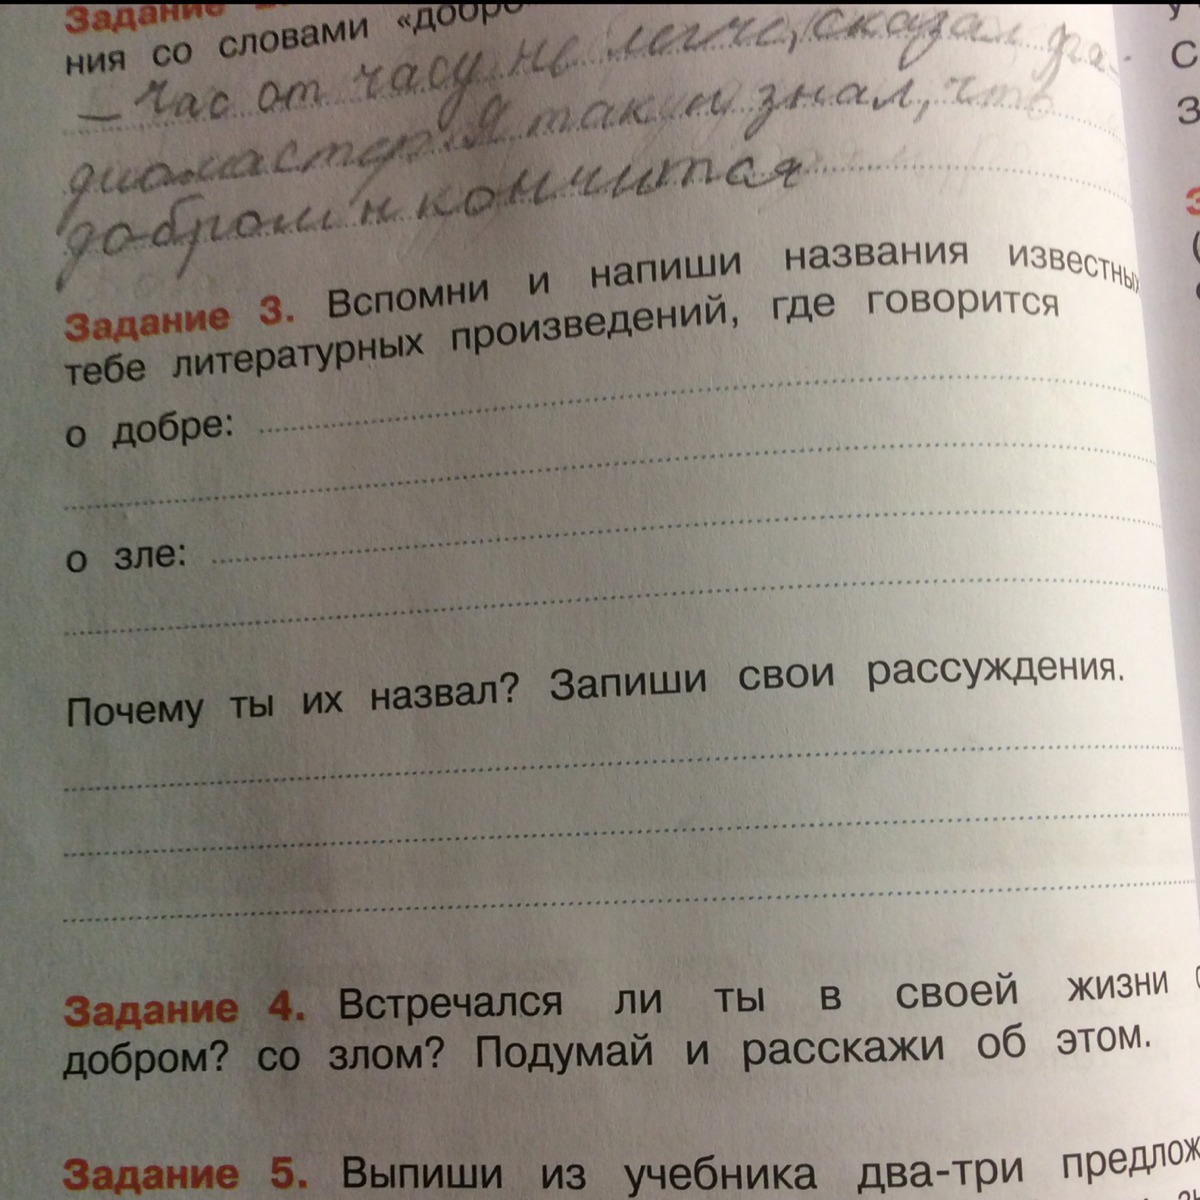 Задание
ния со словами «добро
– Час от часу не легче, сказал ра-
диомастер. Я так и знал, что
добром н кончится
Задание 3. Вспомни и напиши названия известных
тебе литературных произведений, где говорится
о добре:
о зле:
Почему ты их назвал? Запиши свои рассуждения.
Задание 4. Встречался ли ты в своей жизни
добром? со злом? Подумай и расскажи об этом.
Задание 5. Выпиши из учебника два-три предлож